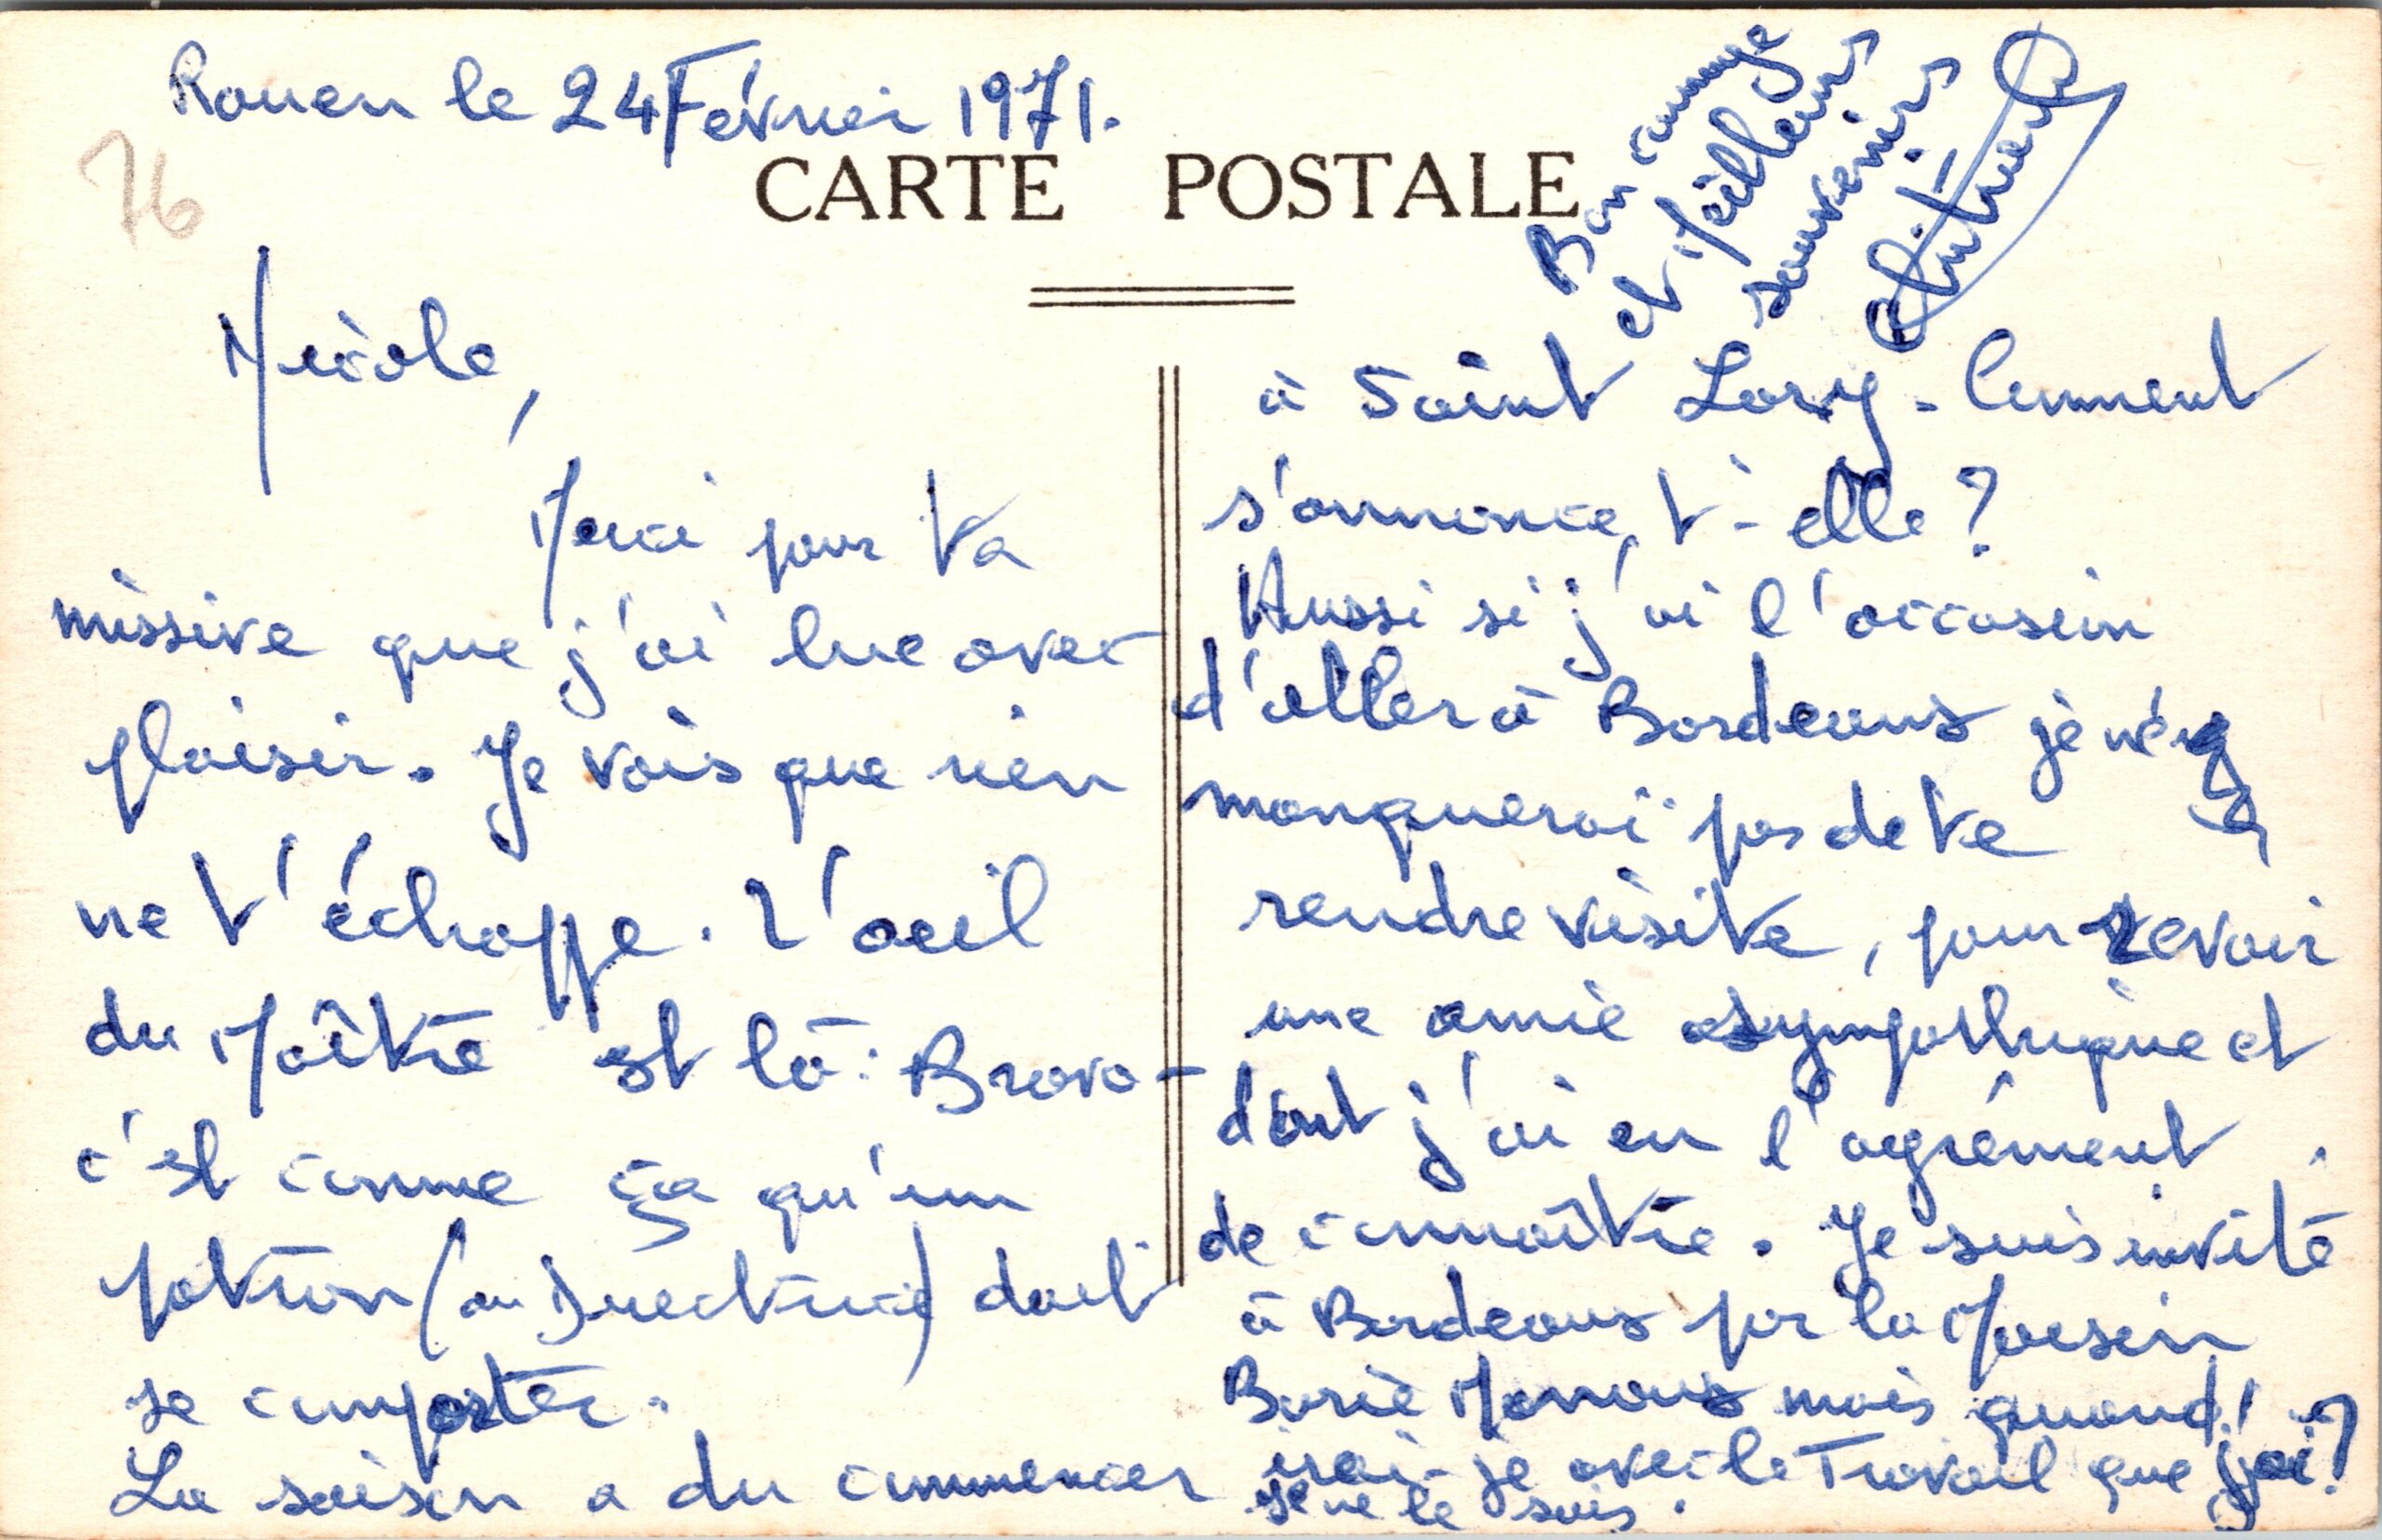 Rouen le 24 Février 1971.
76
CARTE POSTALE
Nicole,
Merci pour ta
missive que j'ai lue avec
plaisir. Je vois que rien
ne t'échappe. L'oeil
du Maître est là: Bravo -
c'est comme ça qu'un
patron (ou Directrice) doit
se comporter.
La saison a du commencer
à Saint Lary - Comment
s'annonce, t-elle?
Aussi si j'ai l'occasion
d'aller à Bordeaux je
manquerai pas de te
rendre visite, pour revoir
une amie sympathique et
dont j'ai eu l'agrément
de connaître. Je suis invité
à Bordeaux par la Maison
Marie mais quand!
irai-je avec le Travail que j'ai?
je ne le sais.
Bon courage
et Meilleurs
souvenirs